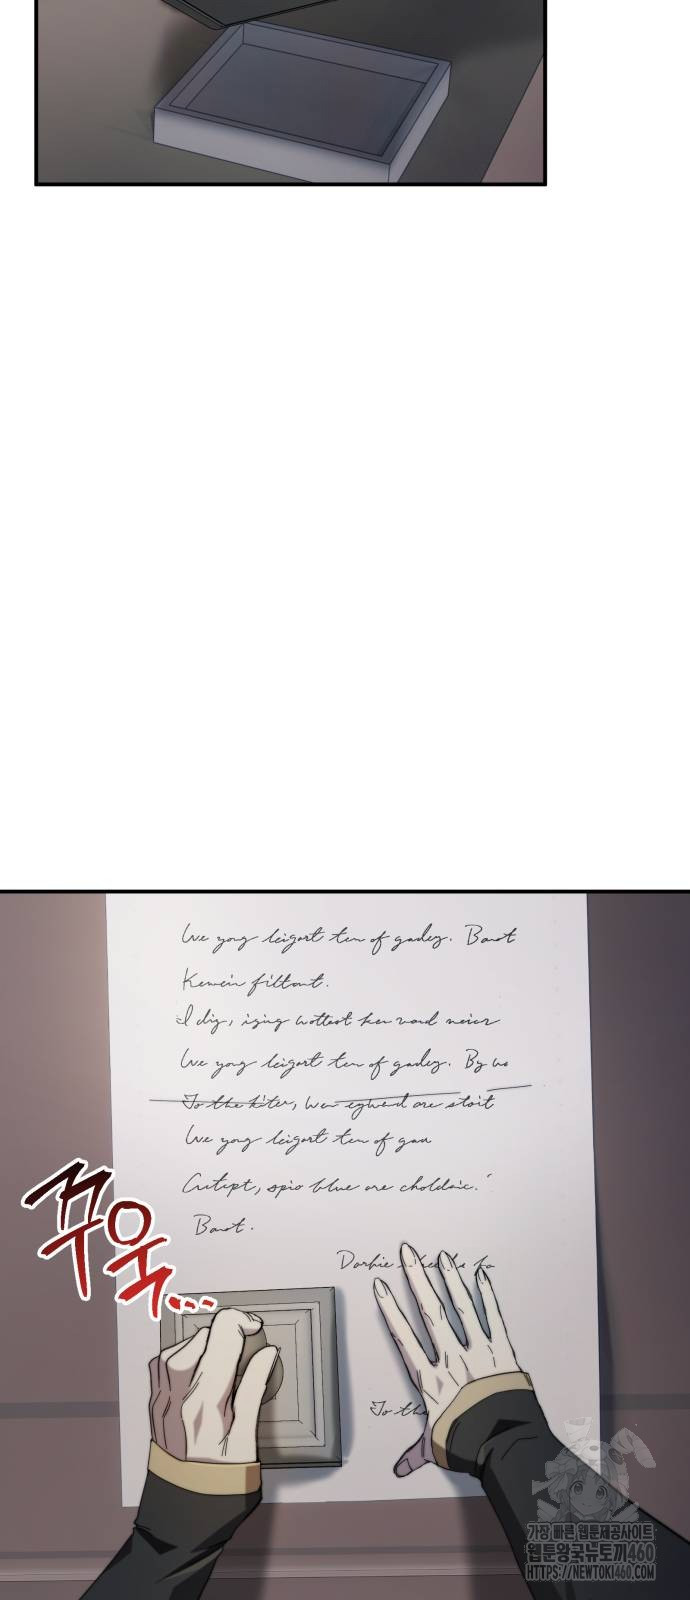 We yong leigort ten of gadey. Baot
Kemein filtont.
I dig, iging wottest her vard neier
We yong leigort ten of gadey. By wo
To the kiter, wer egwed are stoit
We yong leigort ten of gaa
Cutept, spio blue are choldaic.
Baot.
Dorhie
To the
꾸욱...
가장 빠른 웹툰제공사이트
웹툰왕국뉴토끼460
HTTPS://NEWTOKI460.COM